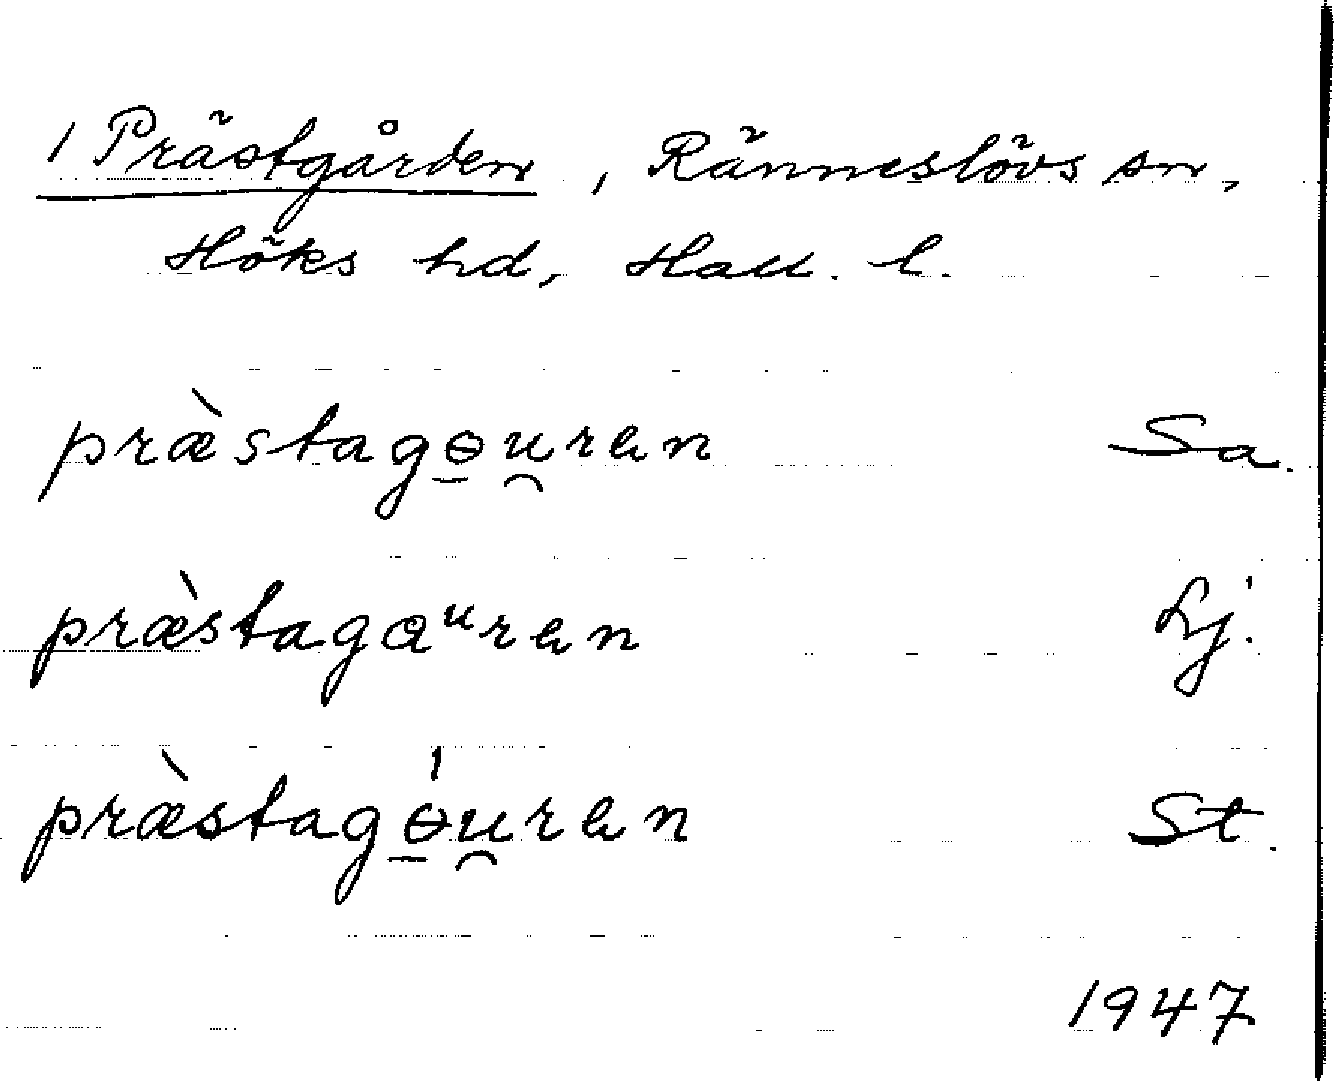 1 Prästgården, Ränneslövs sn,
Höks hd, Hall. l.
præ̀stagɵ̱u̯rɐn Sa.
præ̀stagɑᵘrɐn Lj.
præ̀stagɵ̱́u̯rɐn St.
1947